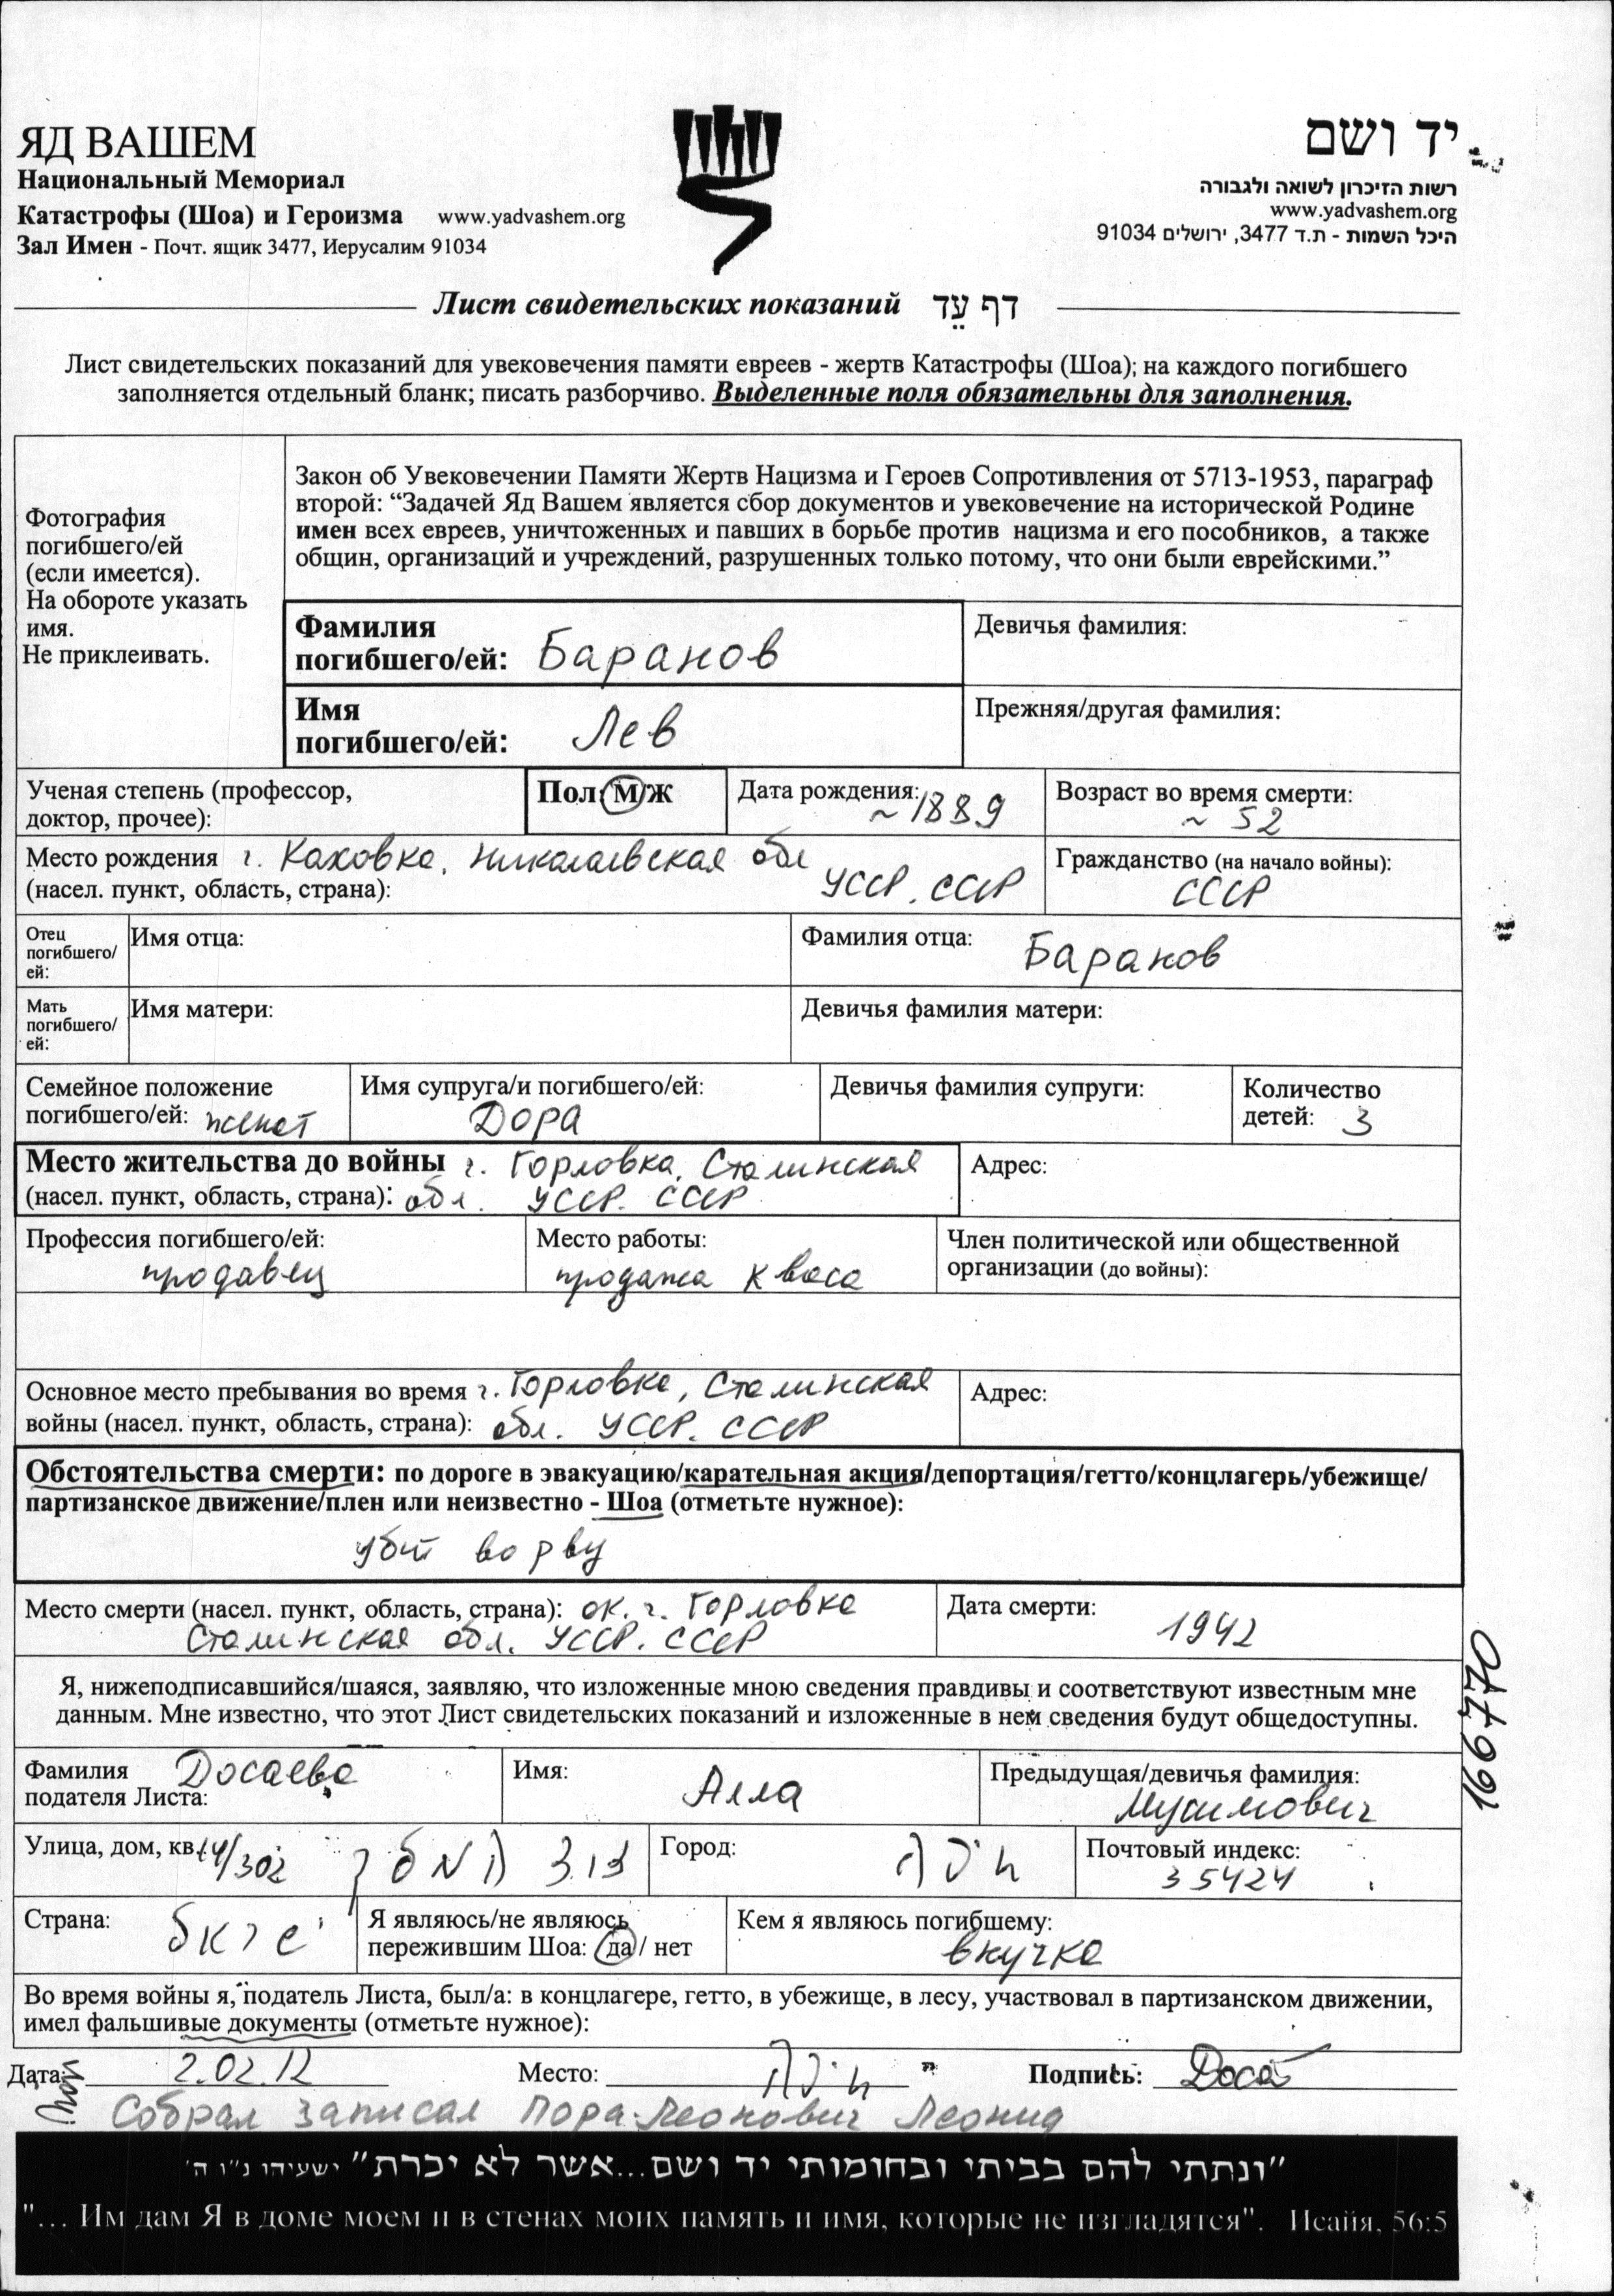 ЯД ВАШЕМ
Национальный Мемориал
Катастрофы (Шоа) и Героизма www.yadvashem.org
Зал Имен - Почт. ящик 3477, Иерусалим 91034
יד ושם
רשות הזיכרון לשואה ולגבורה
www.yadvashem.org
היכל השמות - ת.ד 3477, ירושלים 91034
Лист свидетельских показаний דף עֵד
Лист свидетельских показаний для увековечения памяти евреев - жертв Катастрофы (Шоа); на каждого погибшего
заполняется отдельный бланк; писать разборчиво. Выделенные поля обязательны для заполнения.
Фотография
погибшего/ей
(если имеется).
На обороте указать
имя.
Не приклеивать.
Закон об Увековечении Памяти Жертв Нацизма и Героев Сопротивления от 5713-1953, параграф
второй: “Задачей Яд Вашем является сбор документов и увековечение на исторической Родине
имен всех евреев, уничтоженных и павших в борьбе против нацизма и его пособников, а также
общин, организаций и учреждений, разрушенных только потому, что они были еврейскими.”
Фамилия
погибшего/ей: Баранов
Девичья фамилия:
Имя
погибшего/ей: Лев
Прежняя/другая фамилия:
Ученая степень (профессор,
доктор, прочее):
Пол: М/Ж
Дата рождения:
~1889
Возраст во время смерти:
~ 52
Место рождения г. Каховка, Николаевская обл
(насел. пункт, область, страна): УССР. СССР
Гражданство (на начало войны):
СССР
Отец
погибшего/
ей:
Имя отца:
Фамилия отца: Баранов
Мать
погибшего/
ей:
Имя матери:
Девичья фамилия матери:
Семейное положение
погибшего/ей: женат
Имя супруга/и погибшего/ей:
Дора
Девичья фамилия супруги:
Количество
детей: 3
Место жительства до войны г. Горловка, Сталинская
(насел. пункт, область, страна): обл. УССР. СССР
Адрес:
Профессия погибшего/ей:
продавец
Место работы:
продажа кваса
Член политической или общественной
организации (до войны):
Основное место пребывания во время г. Горловка, Сталинская
войны (насел. пункт, область, страна): обл. УССР. СССР
Адрес:
Обстоятельства смерти: по дороге в эвакуацию/карательная акция/депортация/гетто/концлагерь/убежище/
партизанское движение/плен или неизвестно - Шоа (отметьте нужное):
убит во рву
Место смерти (насел. пункт, область, страна): ок. г. Горловка
Сталинская обл. УССР. СССР
Дата смерти:
1942
Я, нижеподписавшийся/шаяся, заявляю, что изложенные мною сведения правдивы и соответствуют известным мне
данным. Мне известно, что этот Лист свидетельских показаний и изложенные в нем сведения будут общедоступны.
166770
Фамилия Досаева
подателя Листа:
Имя:
Алла
Предыдущая/девичья фамилия:
Улица, дом, кв. 14/302
Город: חיפה
Почтовый индекс:
35424
Страна:
Я являюсь/не являюсь
пережившим Шоа: да / нет
Кем я являюсь погибшему:
внучка
Во время войны я, податель Листа, был/а: в концлагере, гетто, в убежище, в лесу, участвовал в партизанском движении,
имел фальшивые документы (отметьте нужное):
Дата: 2.02.12
Место: חיפה
Подпись:
Собрал записал Леонид
"ונתתי להם בביתי ובחומותי יד ושם...אשר לא יכרת" ישעיהו נ"ו ה'
"... Им дам Я в доме моем и в стенах моих память и имя, которые не изгладятся". Исайя, 56:5